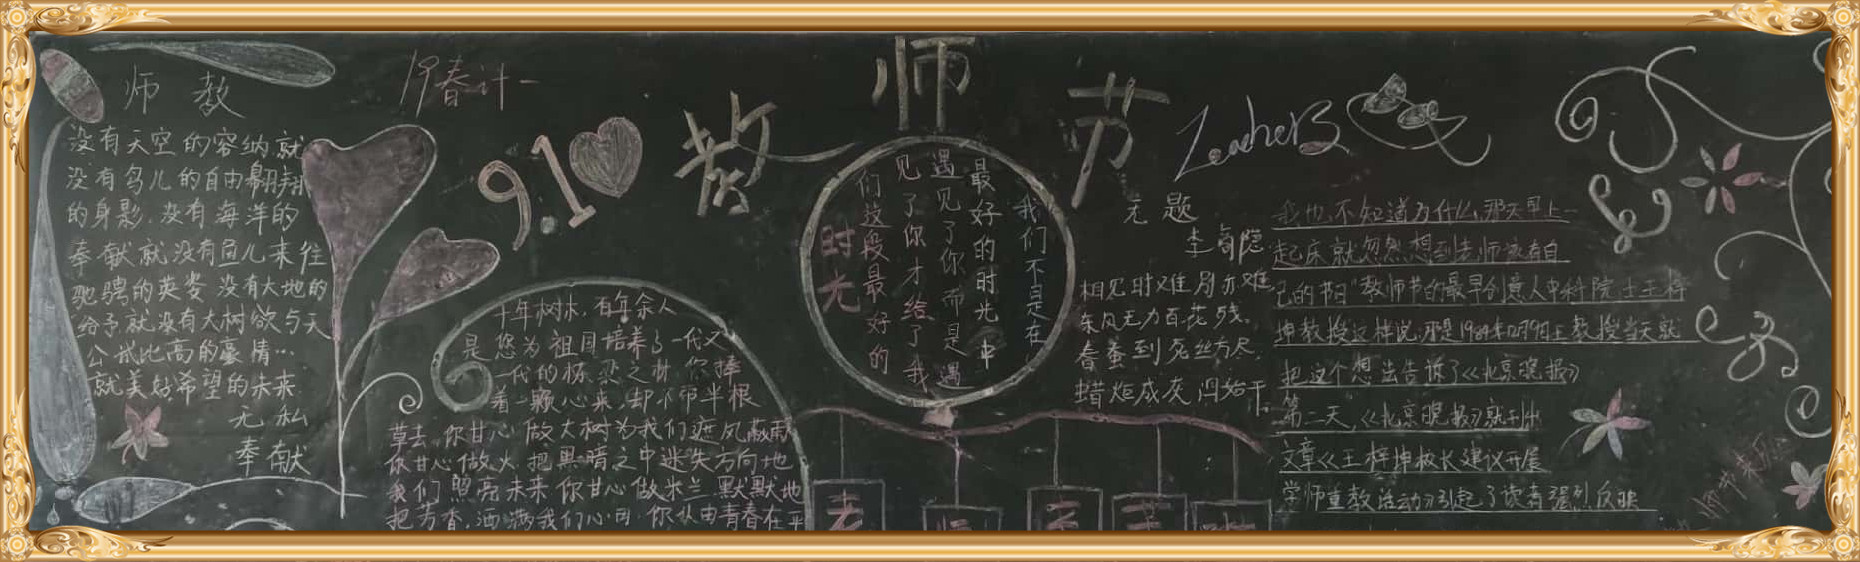 师教
没有天空的容纳就
没有鸟儿的自由翱翔
的身影.没有海洋的
奉献就没有鱼儿来往
驰骋的英姿 没有大地的
给予就没有大树欲与天
公试比高的豪情…
就美好希望的未来
无私
奉献
春计一
9.10
教师节
Teachers
我们不是在
最好的时光中
遇见了你而是遇
见了你才给了我
们这段最好的
时光
十年树林,百年余人
是您为祖国培养了一代又
一代的栋梁之材 你捧
着一颗心来,却不带半根
草去,你甘心做大树为我们遮风蔽雨
你甘心做火把黑暗之中迷失方向地
我们照亮未来你甘心做米兰默默地
把芳香,洒满我们心田.你从由青春在平
无题
李商隐
相见时难别亦难
东风无力百花残.
春蚕到死丝方尽.
蜡炬成灰泪始干.
我也不知道为什么,那天早上一
起床就忽然想到老师该有自
己的节日"教师节的最早创意人中科院士王梓
坤教授这样说,那是1984年12月9日王教授当天就
把这个想法告诉了《北京晚报》
第二天,《北京晚报》就刊出
文章《王梓坤校长建议开展
学师重教活动》引起了读者强烈反映